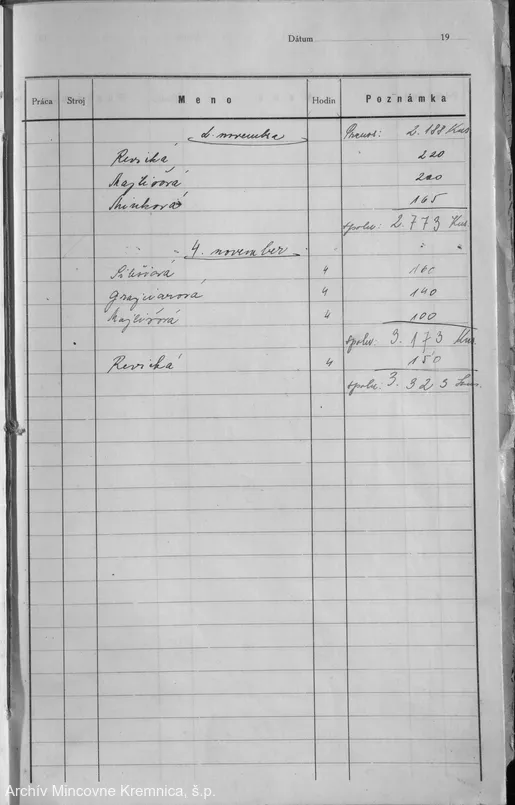 Dátum 19
Práca Stroj Meno Hodin Poznámka
2. novembra Prenos: 2.188 Kus
Revická 220
Majtišová 200
Minková 165
spolu: 2.773 Kus
4. november
4 160
Grajciarová 4 140
Majtišová 4 100
spolu: 3.173 Kus.
Revická 4 150
spolu: 3.323 kus.
Archív Mincovne Kremnica, š.p.